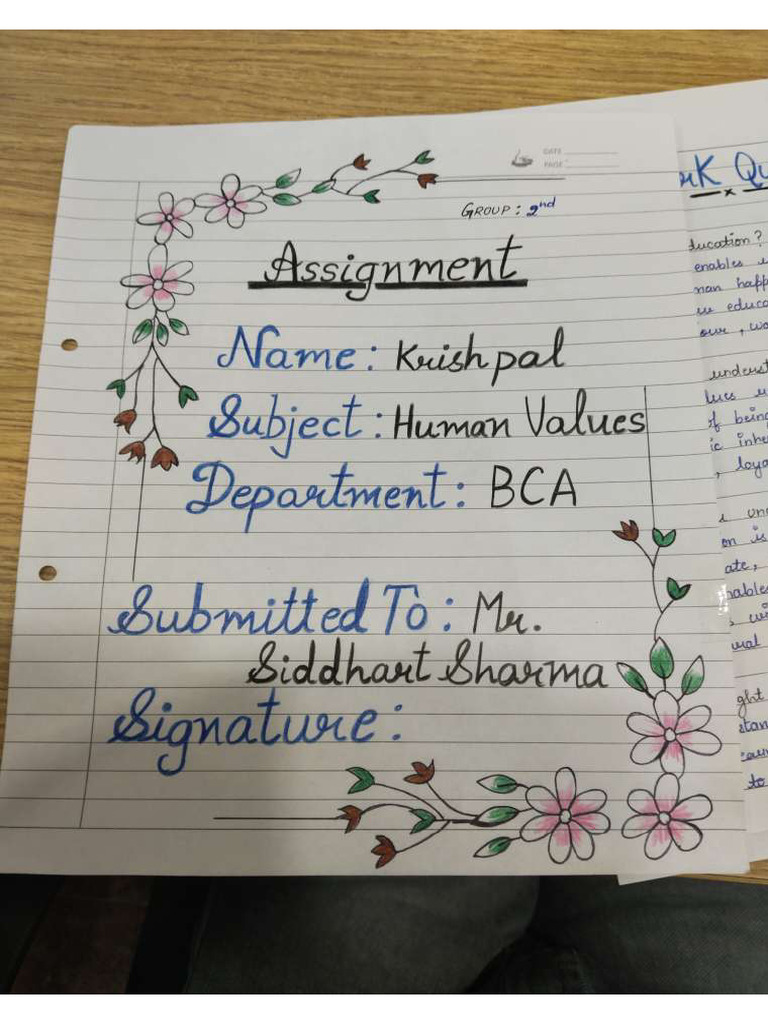 DATE
PAGE
GROUP : 2nd
Assignment
Name : Krishpal
Subject : Human Values
Department : BCA
Submitted To : Mr.
Siddhart Sharma
Signature :
ducation ?
enables
man happ
educa
our , wo
underst
lues
of being
ic inhe
, loya
on is
ate,
nables
ght
stan
to